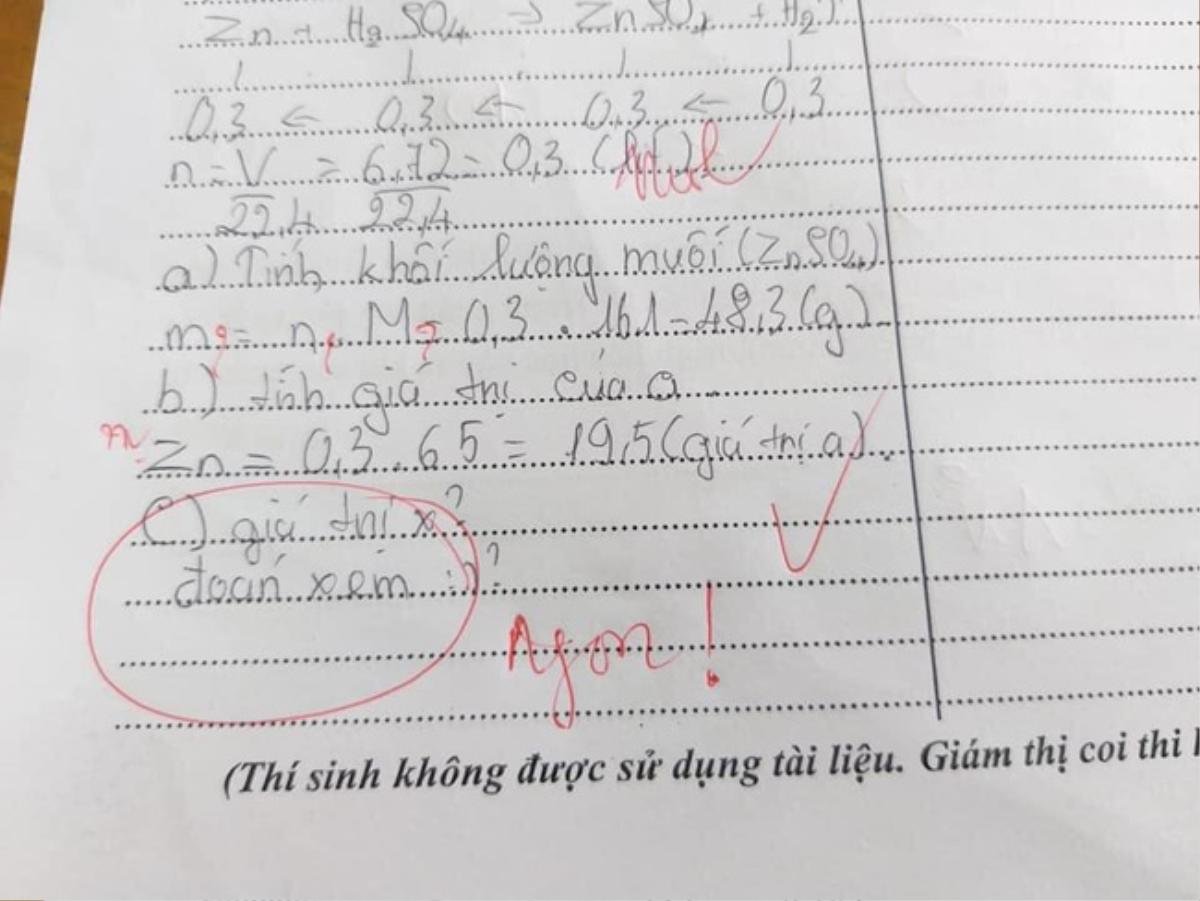 Zn + H2SO4 → ZnSO4 + H2↑
1 1 1 1
0,3 ← 0,3 ← 0,3 ← 0,3
n = V = 6,72 = 0,3 mol
22,4 22,4
a) Tính khối lượng muối (ZnSO4)
m ? = n . M ? = 0,3 . 161 = 48,3 (g)
b) tính giá trị của a
m Zn = 0,3 . 65 = 19,5 (giá trị a)
c) giá trị x?
đoán xem :)?
Ngon!
(Thí sinh không được sử dụng tài liệu. Giám thị coi thi